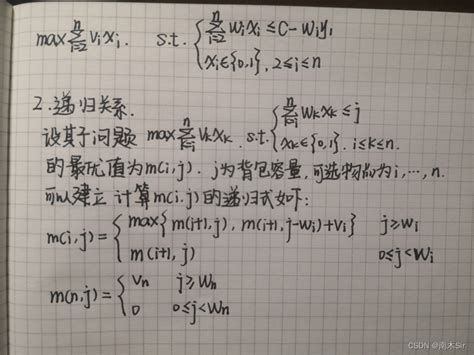 max∑_{i=2}^{n} vᵢxᵢ. s.t. { ∑_{i=2}^{n} wᵢxᵢ ≤ C-wᵢy₁
xᵢ∈{0,1}, 2≤i≤n
2.递归关系.
设其子问题 max∑_{k=i}^{n} vₖxₖ. s.t. { ∑_{k=i}^{n} wₖxₖ ≤ j
xₖ∈{0,1}, i≤k≤n.
的最优值为m(i,j). j为背包容量,可选物品为i,…,n.
可以建立计算m(i,j)的递归式如下:
m(i,j)= { max{m(i+1,j), m(i+1,j-wᵢ)+vᵢ} j≥wᵢ
m(i+1,j) 0≤j<wᵢ
m(n,j)= { vₙ j≥wₙ
0 0≤j<wₙ
CSDN @南木Sir.